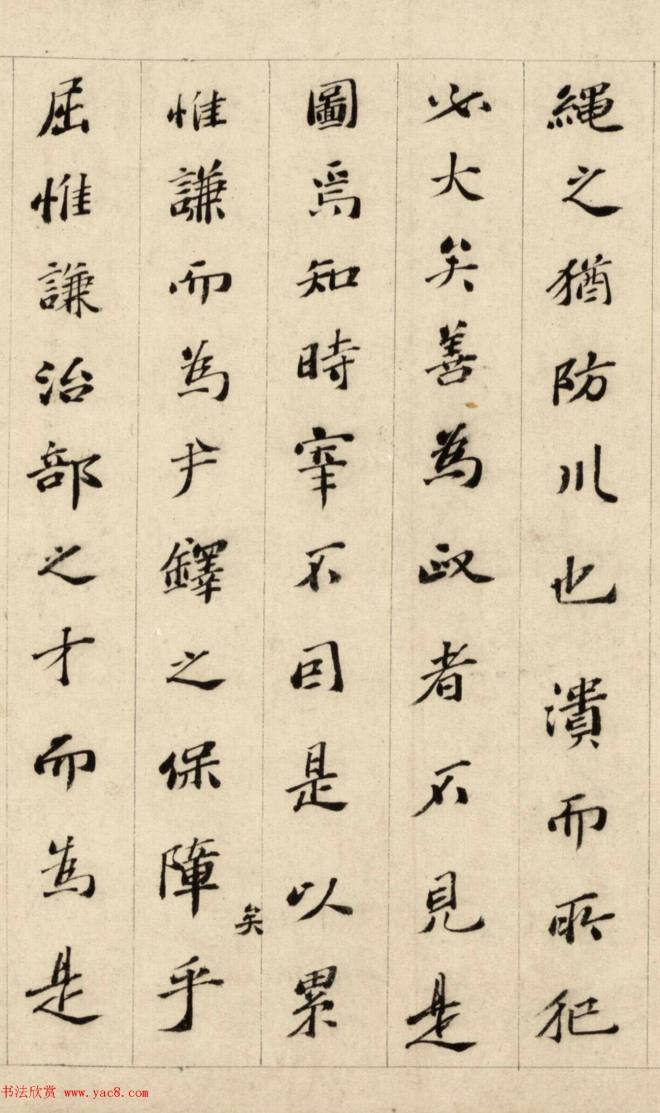 繩之猶防川也潰而所犯
必大矣善為政者不見是
圖焉知時宰不因是以累
惟謙而為尹鐸之保障乎
矣
屈惟謙治部之才而為是
书法欣赏 www.yac8.com